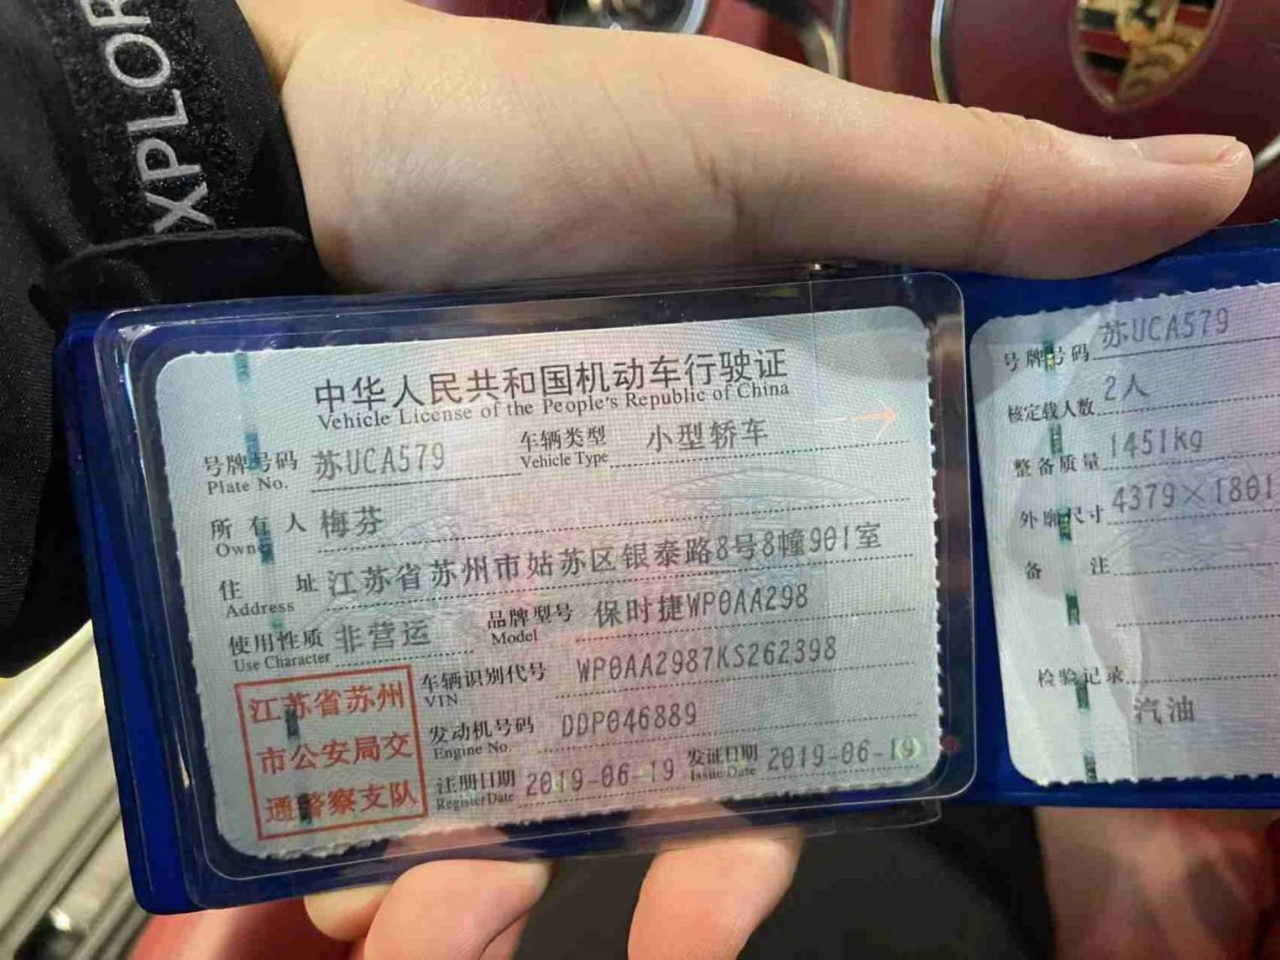 XPLOR
中华人民共和国机动车行驶证
Vehicle License of the People's Republic of China
号牌号码 苏UCA579 车辆类型 小型轿车
Plate No. Vehicle Type
所有人 梅芬
Owner
住址 江苏省苏州市姑苏区银泰路8号8幢901室
Address
使用性质 非营运 品牌型号 保时捷WP0AA298
Use Character Model
江苏省苏州
市公安局交
通警察支队
车辆识别代号 WP0AA2987KS262398
VIN
发动机号码 DDP046889
Engine No.
注册日期 2019-06-19 发证日期 2019-06-19
Register Date Issue Date
号牌号码 苏UCA579
核定载人数 2人
整备质量 1451kg
外廓尺寸 4379×1801
备注
检验记录
汽油